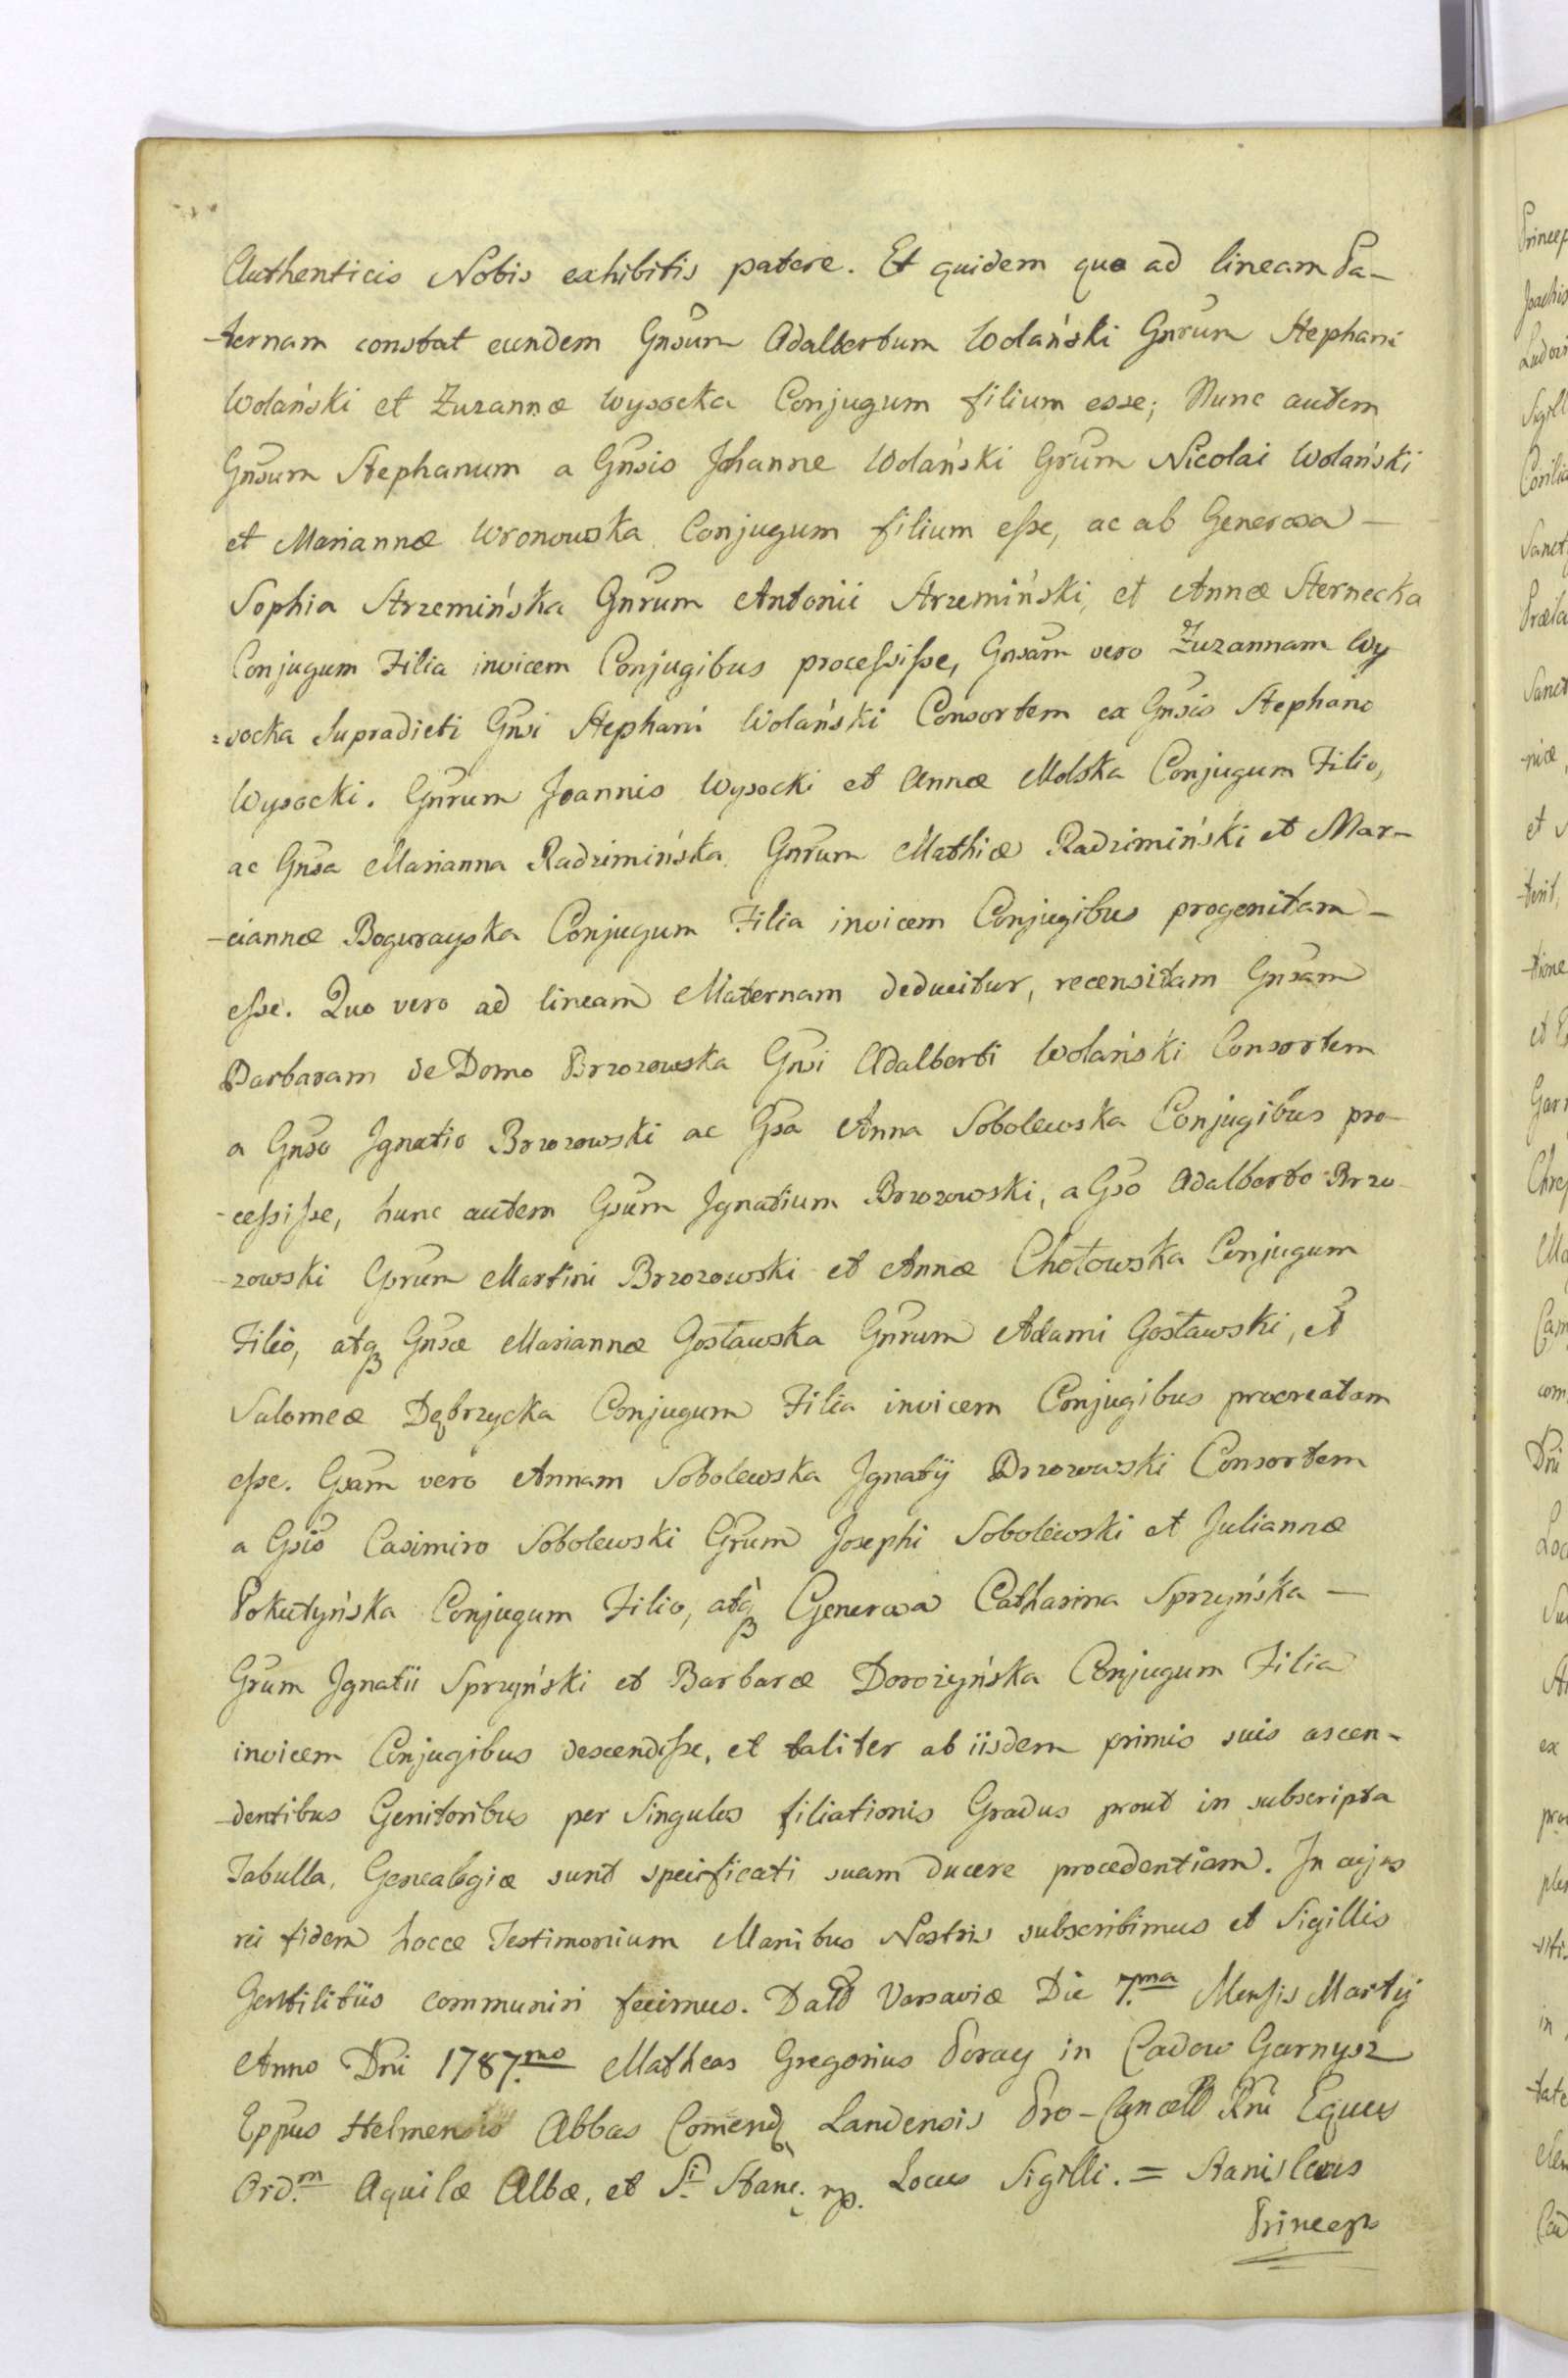 Authenticis Nobis exhibitis patere. Et quidem quo ad lineam Pa-
-ternam constat eundem Gnsum Adalbertum Wolański Gnrum Stephani
Wolański et Zuzannæ Wysocka Conjugum filium esse; Nunc autem
Gnsum Stephanum a Gnsis Johanne Wolański Grum Nicolai Wolański
et Mariannæ Wronowska Conjugum filium eſse, ac ab Generosa —
Sophia Strzemińska Gnrum Antonii Strzemiński, et Annæ Sternecka
Conjugum Filia invicem Conjugibus proceſsiſse, Gnsam vero Zuzannam Wy
=socka Supradicti Gnsi Stephani Wolański Consortem ex Gnsis Stephano
Wysocki. Gnrum Joannis Wysocki et Annæ Molska Conjugum Filio,
ac Gnsa Marianna Radzimińska Gnrum Mathiæ Radzimiński et Mar-
-ciannæ Bogurayska Conjugum Filia invicem Conjugibus progenitam —
eſse. Quo vero ad lineam Maternam deducitur, recensitam Gnsam
Barbaram de Domo Brzozowska Gnsi Adalberti Wolański Consortem
a Gnso Ignatio Brzozowski ac Gsa Anna Sobolewska Conjugibus pro-
-ceſsiſse, hunc autem Gsum Ignatium Brzozowski, a Gso Adalberto Brzo-
-zowski Grum Martini Brzozowski et Annæ Chołowska Conjugum
Filio, atq Gnsæ Mariannæ Gosławska Gnrum Adami Gosławski, et
Salomeæ Dębrzycka Conjugum Filia invicem Conjugibus procreatam
eſse. Gsam vero Annam Sobolewska Ignatÿ Brzozowski Consortem
a Gsis Casimiro Sobolewski Grum Josephi Sobolewski et Juliannæ
Pokutyńska Conjugum Filio, atq Generosa Catharina Sprzyńska —
Grum Ignatii Sprzyński et Barbaræ Dorożyńska Conjugum Filia
invicem Conjugibus descendiſse, et taliter ab iisdem primis suis ascen-
-dentibus Genitoribus per Singulos filiationis Gradus prout in subscripta
Tabulla, Genealogiæ sunt specificati suam ducere procedentiam. In cujus
rei fidem hocce Testimonium Manibus Nostris subscribimus et Sigillis
Gentilitiis communiri fecimus. Datt Varsaviæ Die 7.ma Menſis Martÿ
Anno Dni 1787.mo Matheas Gregorius Poray in Cadow Garnysz
Eppus Helmensis Abbas Comend Landensis Pro-Cancell Rni Eques
Ord.m Aquilæ Albæ, et S.i Stanc. mp. Locus Sigilli. = Stanislaus
Princeps